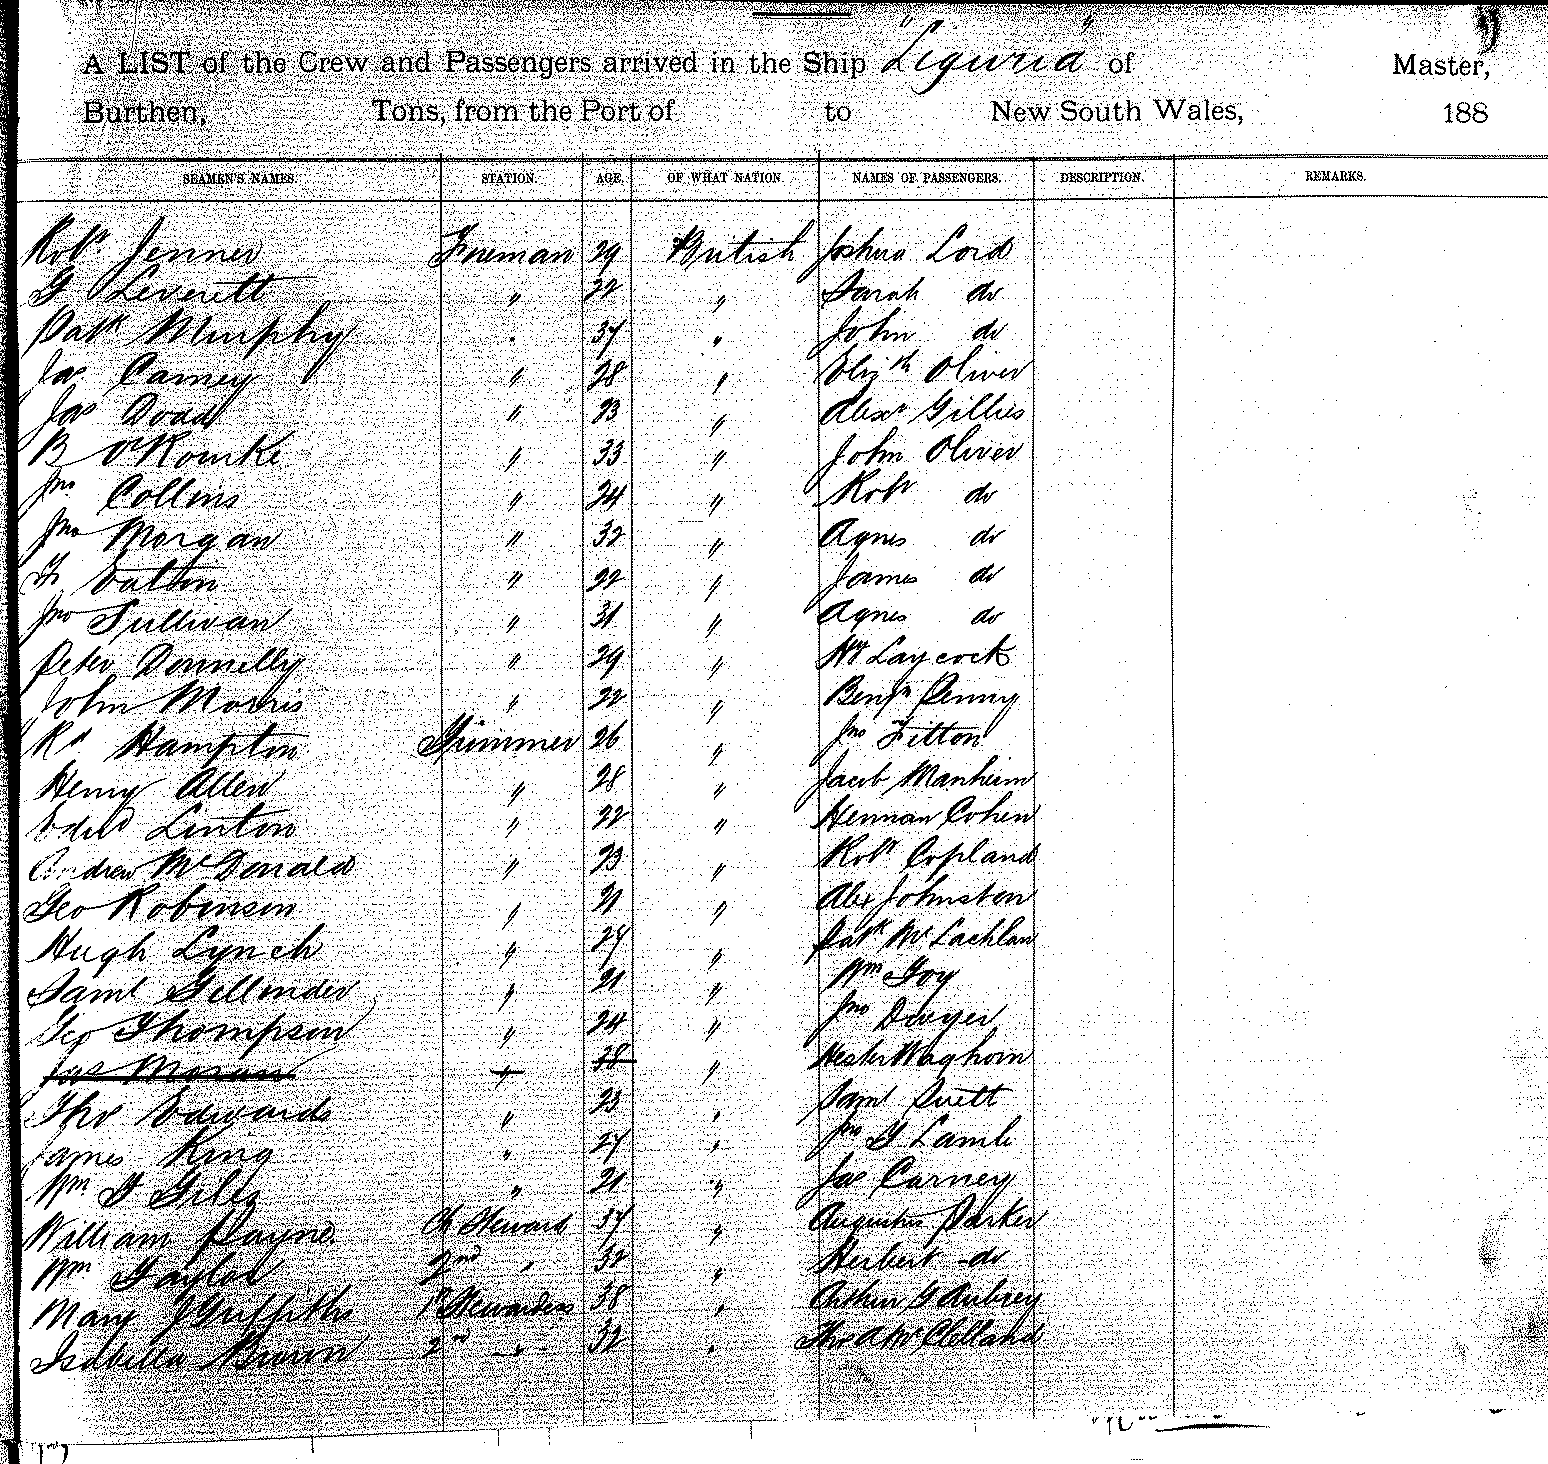 A LIST of the Crew and Passengers arrived in the Ship "Liguria" of Master,
Burthen, Tons, from the Port of to New South Wales, 188
SEAMEN'S NAMES. STATION. AGE. OF WHAT NATION. NAMES OF PASSENGERS. DESCRIPTION. REMARKS.
Robt Jenner Fireman 29 British Joshua Lord
G Leverett " 22 " Sarah do
Patk Murphy " 37 " John do
Jas Carney " 28 " Elizth Oliver
Jas Doad " 23 " Alexr Gillies
B O'Rourke " 33 " John Oliver
Jno Collins " 24 " Robt do
Jno Morgan " 32 " Agnes do
" 22 " James do
Jno Sullivan " 31 " Agnes do
Peter Donnelly " 29 " Wm Laycock
John Morris " 22 " Benjn Penny
Rd Hampton Trimmer 26 " Jno Fitton
Henry Allen " 28 " Jacob Manheim
Edwd Linton " 22 " Herman Cohen
Andrew McDonald " 23 " Robt Copland
Geo Robinson " 21 " Alex Johnston
Hugh Lynch " 27 " Patk McLachlan
Saml Gillender " 21 " Wm Foy
Geo Thompson " 24 " Jno Dwyer
Jas Moran " 38 " Hester Waghorn
Tho Edwards " 23 " Saml Suett
James King " 27 " Jno G Lamb
Wm G Gills " 21 " Jas Carney
William Payne Ch Steward 37 " Augustus Parker
Wm Taylor 2nd " 32 " Herbert do
Mary J Griffiths 1st Stewardess 38 " Arthur G Aubrey
Isabella Brown 2nd " 32 " Thos A McClelland